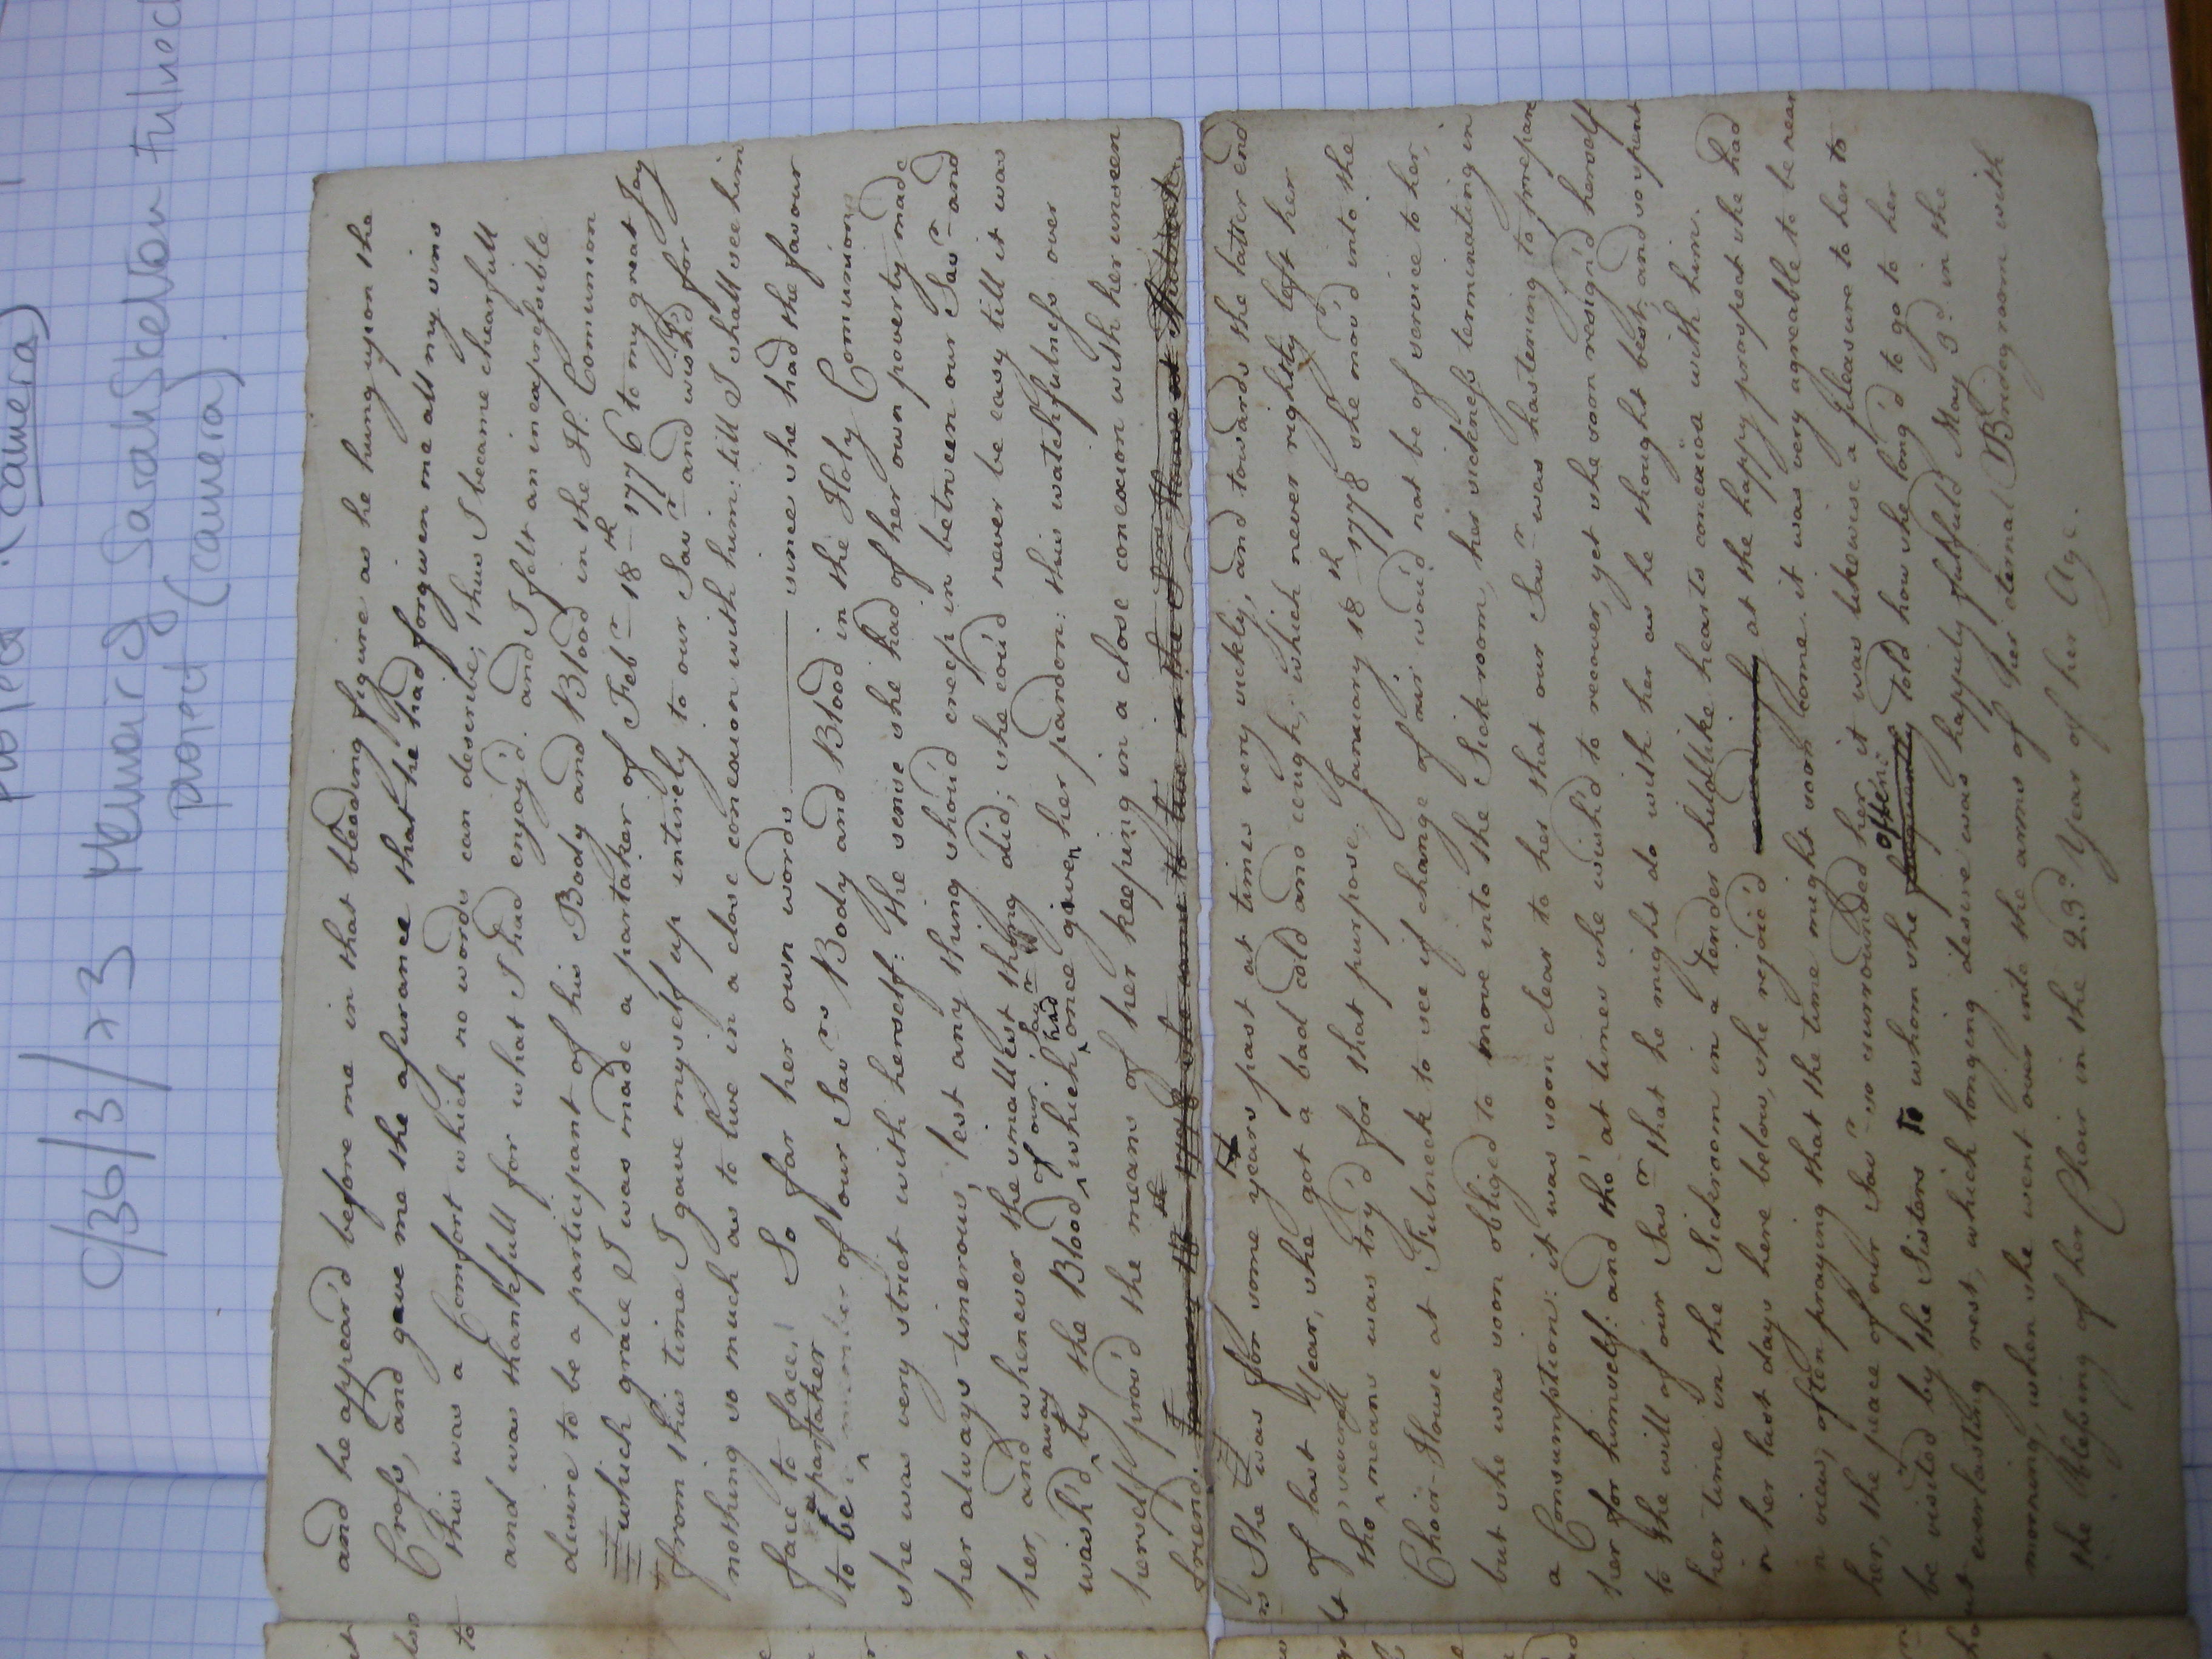 project (camera)
C/36/3/73 Memoir of Sarah Skelton Fulneck
project (camera).
and he appear'd before me in that bleeding figure as he hung upon the
Cross, and gave me the asurance that he had forgiven me all my sins
this was a Comfort which no words can describe; thus I became chearfull
and was thankfull for what I had enjoy'd. and I felt an inexpressible
desire to be a participant of his Body and Blood in the H: Comunion
which grace I was made a partaker of Febr 18th 1776 to my great Joy
from this time I gave myself up intirely to our Savr and wish'd for
nothing so much as to live in a close conexion with him: till I shall see him
face to face. So far her own words ——— since she had the favour
a partaker
to be of our Savrs Body and Blood in the Holy Comunion
she was very strict with herself: the sense she had of her own poverty made
her always timerous, lest any thing shou'd creep in between our Savr and
her, and whenever the smallest thing did; she cou'd never be easy till it was
away of our Savr had
wash'd by the Blood which once given her pardon: this watchfulness over
herself prov'd the means of her keeping in a close conexion with her unseen
friend. January 18th 1778 she came to live in the Srs House at Fulneck.
She was for some years past at times very sickly, and towards the latter end
of last Year, she got a bad cold and cough, which never rightly left her
severall
tho means was try'd for that purpose. January 18th 1778 she mov'd into the
Choir-House at Fulneck to see if change of air wou'd not be of service to her,
but she was soon obliged to move into the Sick-room, her sickness terminating in
a Consumption: it was soon clear to her that our Savr was hastening to prepare
her for himself: and tho' at times she wish'd to recover, yet she soon resign'd herself
to the will of our Savr that he might do with her as he thought best, and so spent
her time in the Sickroom in a tender childlike hearts conexion with him.
in her last days here below, she rejoic'd exceedingly at the happy prospect she had
in view, often praying that the time might soon come. it was very agreable to be near
her, the peace of our Savr so surrounded her, it was likewise a pleasure to her to
often
be visited by the Sisters to whom she frequently told how she long'd to go to her
everlasting rest, which longing desire was happily fulfuld May 3d in the
morning, when she went over into the arms of her eternal Bridegroom with
the blessing of her Choir in the 23d Year of her Age.